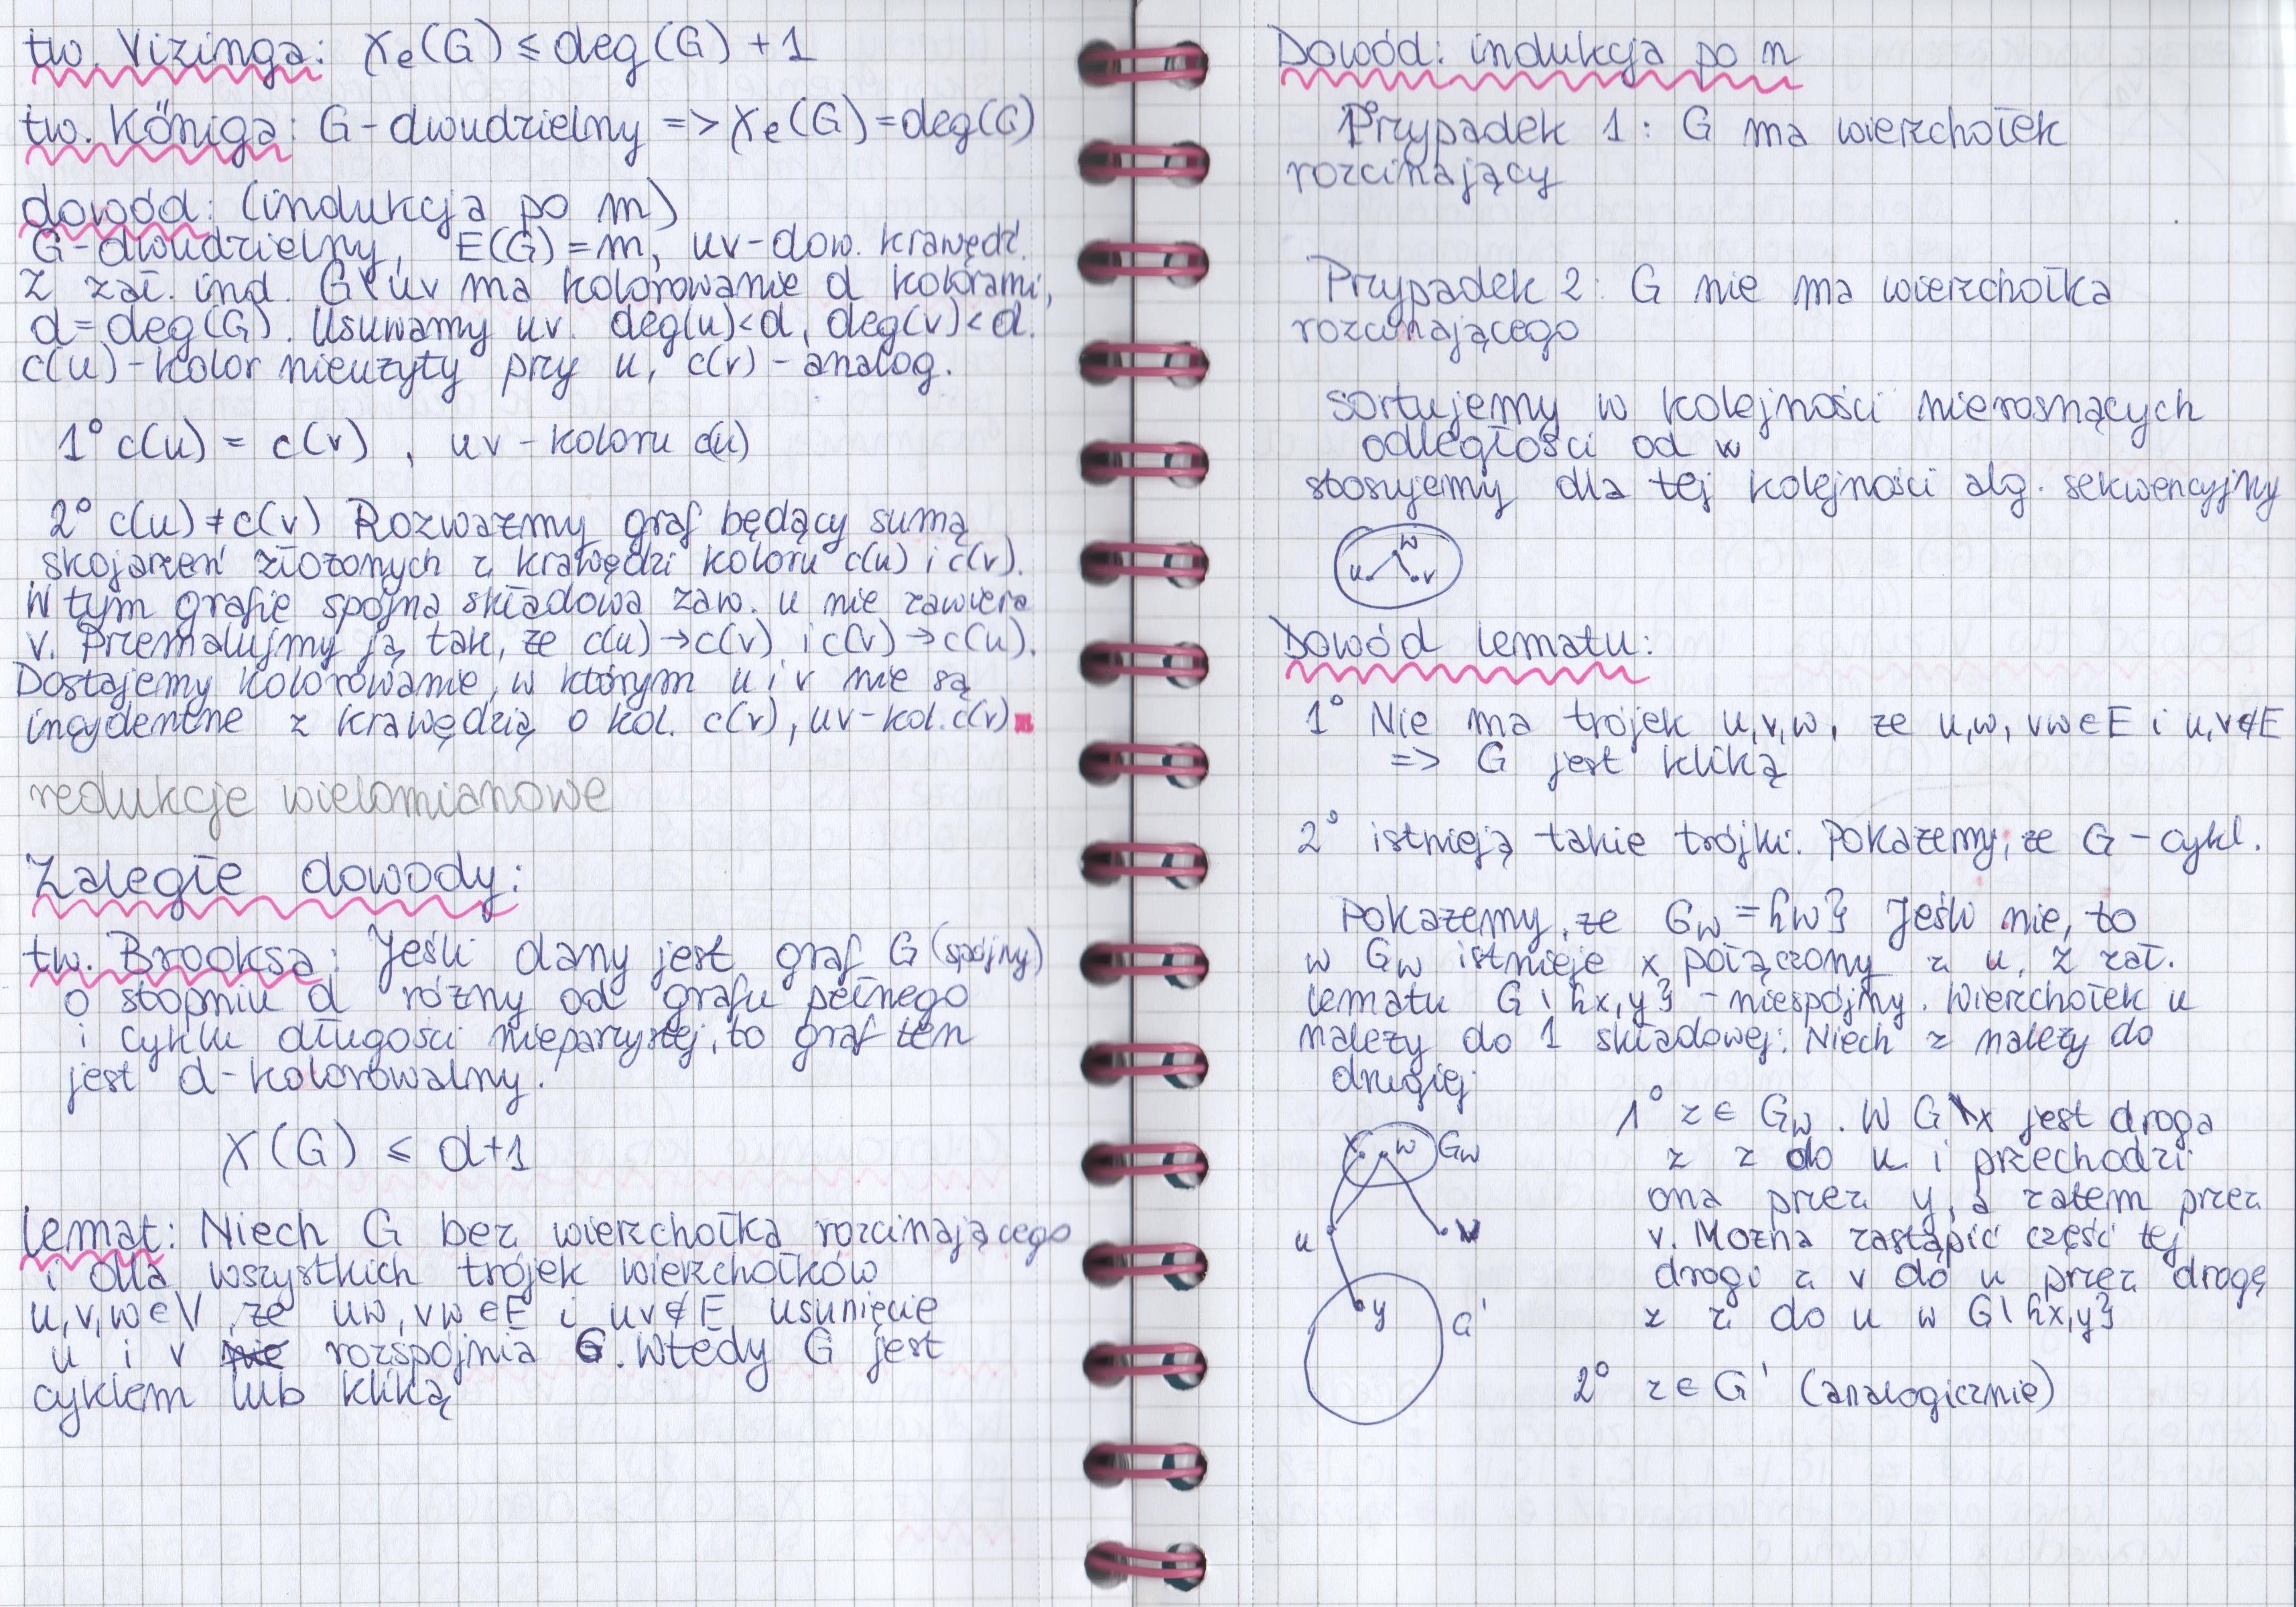 tw. Vizinga: χe(G) ≤ deg(G) + 1
tw. Kőniga: G - dwudzielny => χe(G) = deg(G)
dowód: (indukcja po m)
G - dwudzielny, E(G) = m, uv - dow. krawędź.
Z zał. ind. G\uv ma kolorowanie d kolorami,
d = deg(G). Usuwamy uv. deg(u) < d, deg(v) < d.
c(u) - kolor nieużyty przy u, c(v) - analog.
1° c(u) = c(v) , uv - koloru c(u)
2° c(u) ≠ c(v) Rozważmy graf będący sumą
skojarzeń złożonych z krawędzi koloru c(u) i c(v).
W tym grafie spójna składowa zaw. u nie zawiera
v. Przemalujmy ją tak, że c(u) → c(v) i c(v) → c(u).
Dostajemy kolorowanie, w którym u i v nie są
incydentne z krawędzią o kol. c(v), uv - kol. c(v)
redukcje wielomianowe
Zaległe dowody:
tw. Brooksa: Jeśli dany jest graf G (spójny)
o stopniu d różny od grafu pełnego
i cyklu długości nieparzystej, to graf ten
jest d - kolorowalny.
χ(G) ≤ d+1
lemat: Niech G bez wierzchołka rozcinającego
i dla wszystkich trójek wierzchołków
u,v,w ∈ V, że uw, vw ∈ E i uv ∉ E usunięcie
u i v nie rozspójnia G. Wtedy G jest
cyklem lub kliką
Dowód: indukcja po n
1° Przypadek 1: G ma wierzchołek
rozcinający
Przypadek 2: G nie ma wierzchołka
rozcinającego
sortujemy w kolejności nierosnących
odległości od w
stosujemy dla tej kolejności alg. sekwencyjny
w
u v
Dowód lematu:
1° Nie ma trójek u,v,w, że u,w, vw ∈ E i u,v ∉ E
=> G jest kliką
2° istnieją takie trójki. Pokażemy, że G - cykl.
Pokażemy, że Gw = {w} Jeśli nie, to
w Gw istnieje x połączony z u, z zał.
lematu G \ {x,y} - niespójny. Wierzchołek u
należy do 1 składowej. Niech z należy do
drugiej
1° z ∈ Gw. W G \ x jest droga
z z do u i przechodzi
ona przez y, a zatem przez
v. Można zastąpić część tej
drogi z v do u przez drogę
z z do u w G \ {x,y}
x w Gw
u v
y G'
2° z ∈ G' (analogicznie)